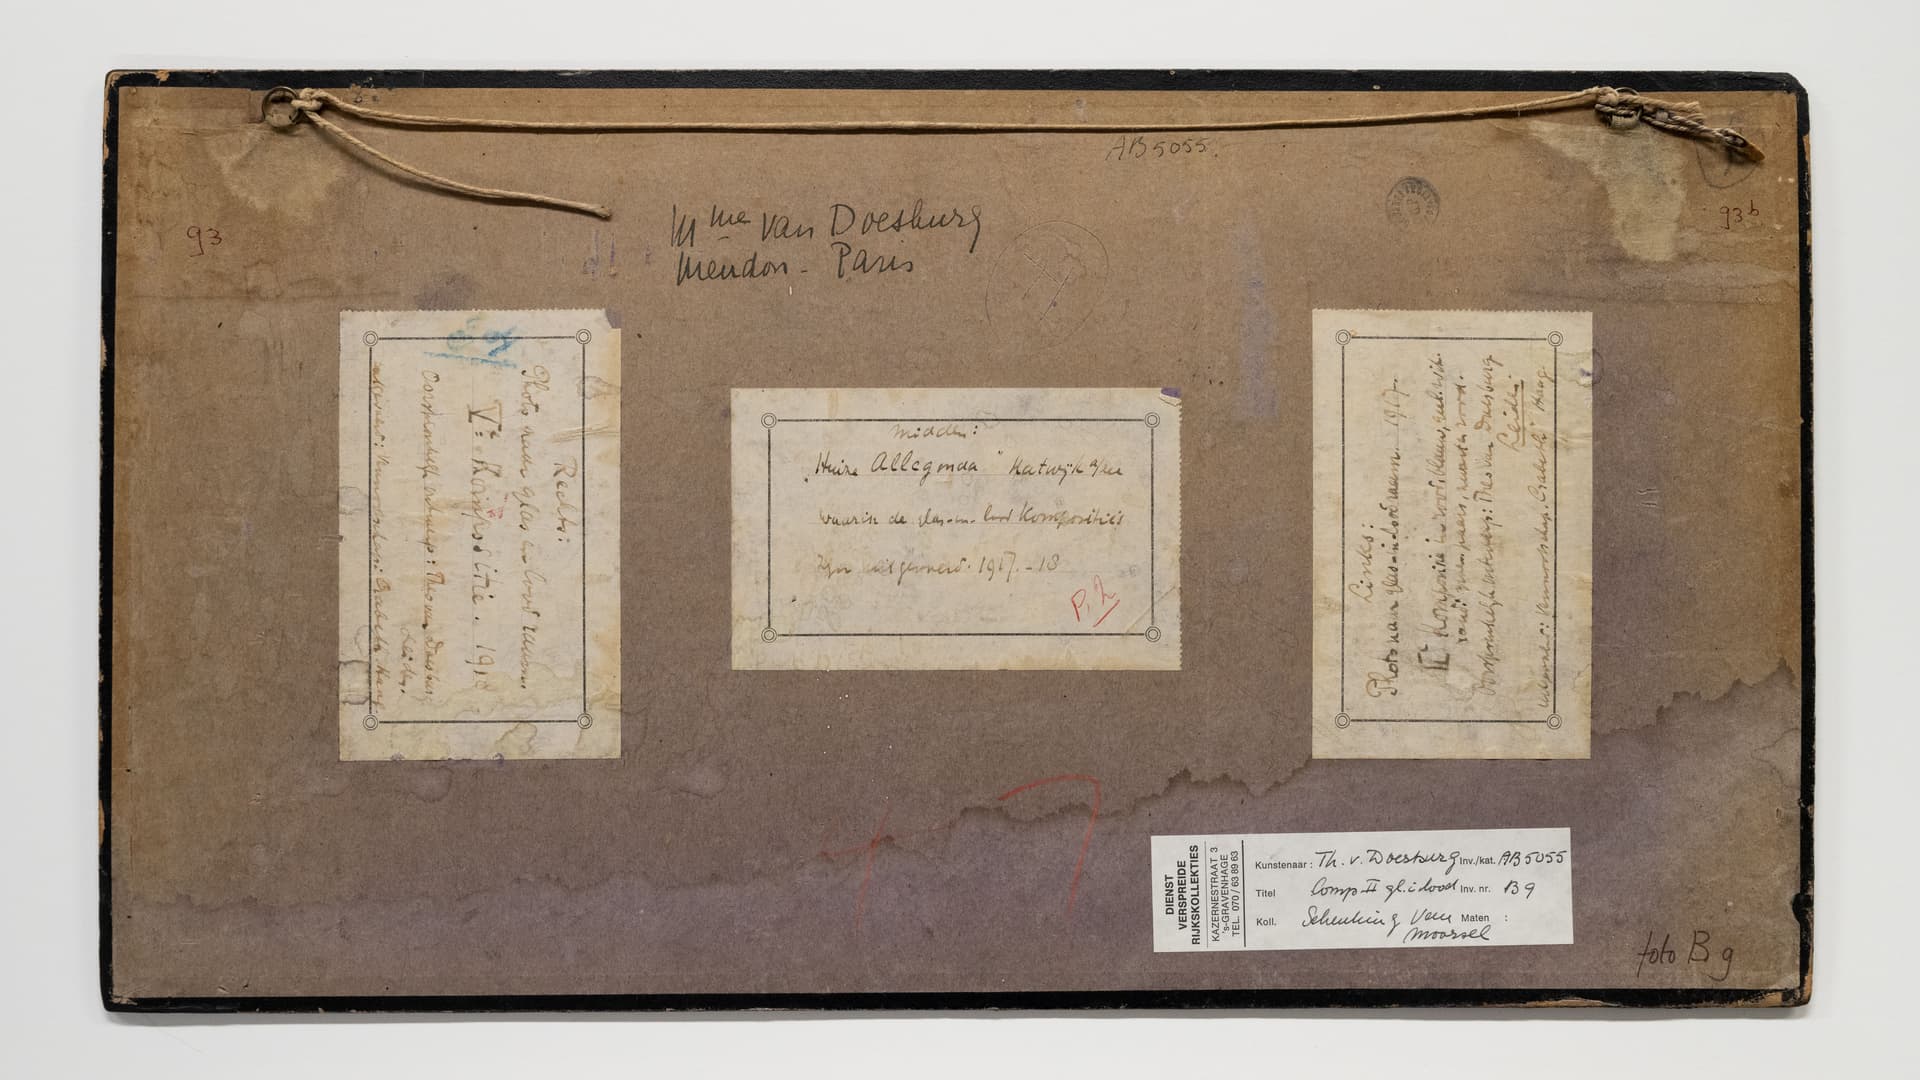 AB 5055.
Mme van Doesburg
Meudon - Paris
93
93 b
Rechts:
Photo naar glas in lood raam.
Vᵉ Kompositie. 191
Oorspronkelijk ontwerp: Theo van Doesburg
Leiden.
Kunstwerkerij: Crabeth Haag
Midden:
„Huize Allegonda" Katwijk a/zee
waarin de glas-in-lood Komposities
zijn uitgevoerd. 1917.-18
P. 2
Links:
Photo naar glas-in-lood raam. 1917.
IIᵉ Kompositie in rood, blauw, geel, wit.
rand: groen, paars, zwart en rood.
Oorspronkelijk ontwerp: Theo van Doesburg
Leiden
„Crabeth" Haag.
47
DIENST
VERSPREIDE
RIJKSKOLLEKTIES
KAZERNESTRAAT 3
's-GRAVENHAGE
TEL. 070 / 63 89 63
Kunstenaar : Th. v. Doesburg Inv./kat. AB 5055
Titel Comp II gl. i lood Inv. nr. B 9
Koll. Schenking Van Moorsel Maten :
foto B 9